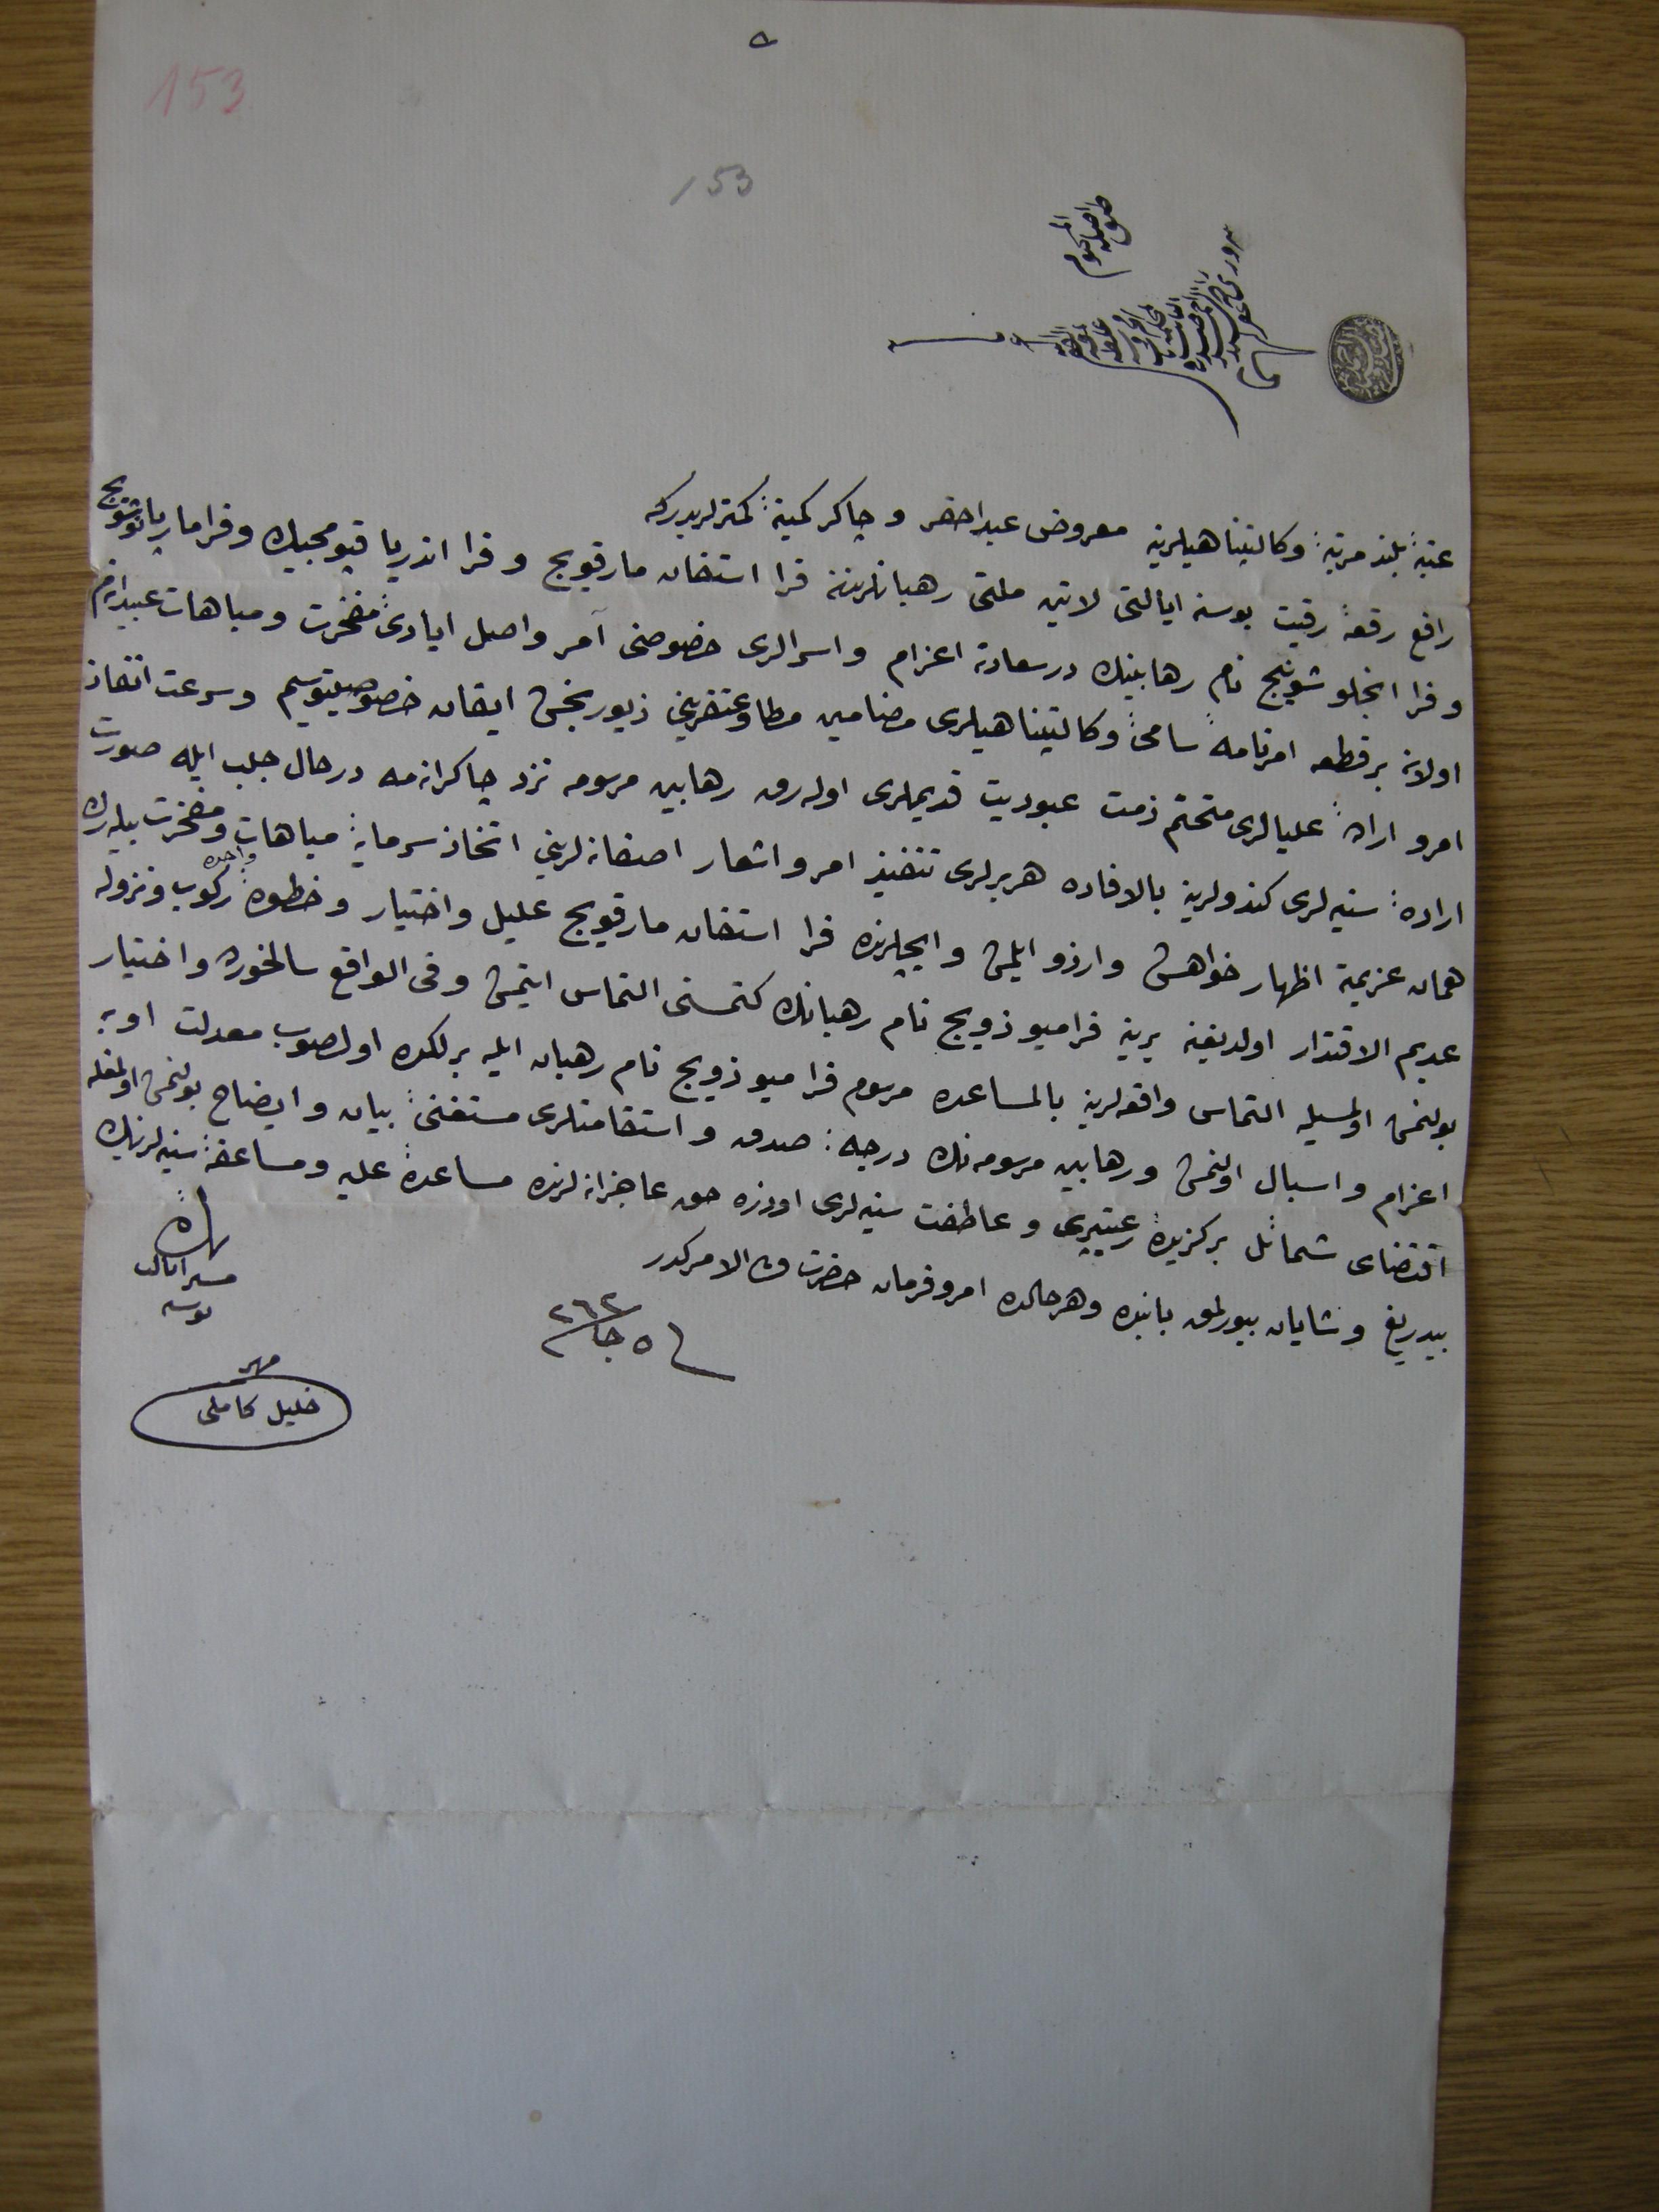 153
153
طبق اصله المحتوم
عتبهٔ بلند مرتبهٔ وكالتپناهیلرینه معروض عبد احقر و چاكر كمینهٔ كمترلریدركه
رافع رقعهٔ رقیت بوسنه ایالتی لاتین ملتی رهبانلرندن فرا استفان مارقویچ و فرا اندریا قیومجیك و فرا ماریانو شونیچ
و فرا انجلو شونیچ نام رهابینك درسعادته اعزام و اسرالری خصوصنی آمر واصل ایادئ مفخرت و مباهات عبیدانهم
اولان بر قطعه امرنامهٔ سامئ وكالتپناهیلری مضامین مطاوعتقرینی زیوربخش ایقان خصوصیتوسیم و سرعت انفاذ
امر و ارادهٔ علیالری متحتم ذمت عبودیت قدیملری اوله‌رق رهابین مرسومه نزد چاكرانه‌مه درحال جلب ایله صورت
ارادهٔ سنیه‌لری كندولرینه بالافاده هر برلری تنفیذ امر و اشعار اصفانه‌لرینی اتخاذ سرمایهٔ مباهات و مفخرت بیله‌رك
همان عزیمته اظهار خواهش و ارزو ایلمش و ایچلرنده فرا استفان مارقویچ علیل و اختیار و خطوهٔ واحده ركوب و نزوله
عدیم الاقتدار اولدیغنه یرینه فرا میو زویچ نام رهبانك كتمسنی التماس ایتمش و فی الواقع سالخورده و اختیار
بولنمش اولمسیله التماس واقعه‌لرینه بالمساعده مرسوم فرا میو زویچ نام رهبان ایله برلكده اولصوب معدلت اوبه
اعزام و اسبال اولنمش و رهابین مرسومه‌نك درجهٔ صدق و استقامتلری مستغنئ بیان و ایضاح بولنمش اولمغله
اقتضای شمائل برگزیدهٔ رعیتپروری و عاطفت سنیه‌لری اوزره حق عاجزانه‌لرنده مساعدهٔ علیه و مساعفهٔ سنیه‌لرینك
بیدریغ و شایان بیورلمق بابنده و هر حالده امر و فرمان حضرت من له الامركدر
فی ٥ جا ٢٦٢
بنده
مشیر ایالت
بوسنه
مهر
خلیل كاملی